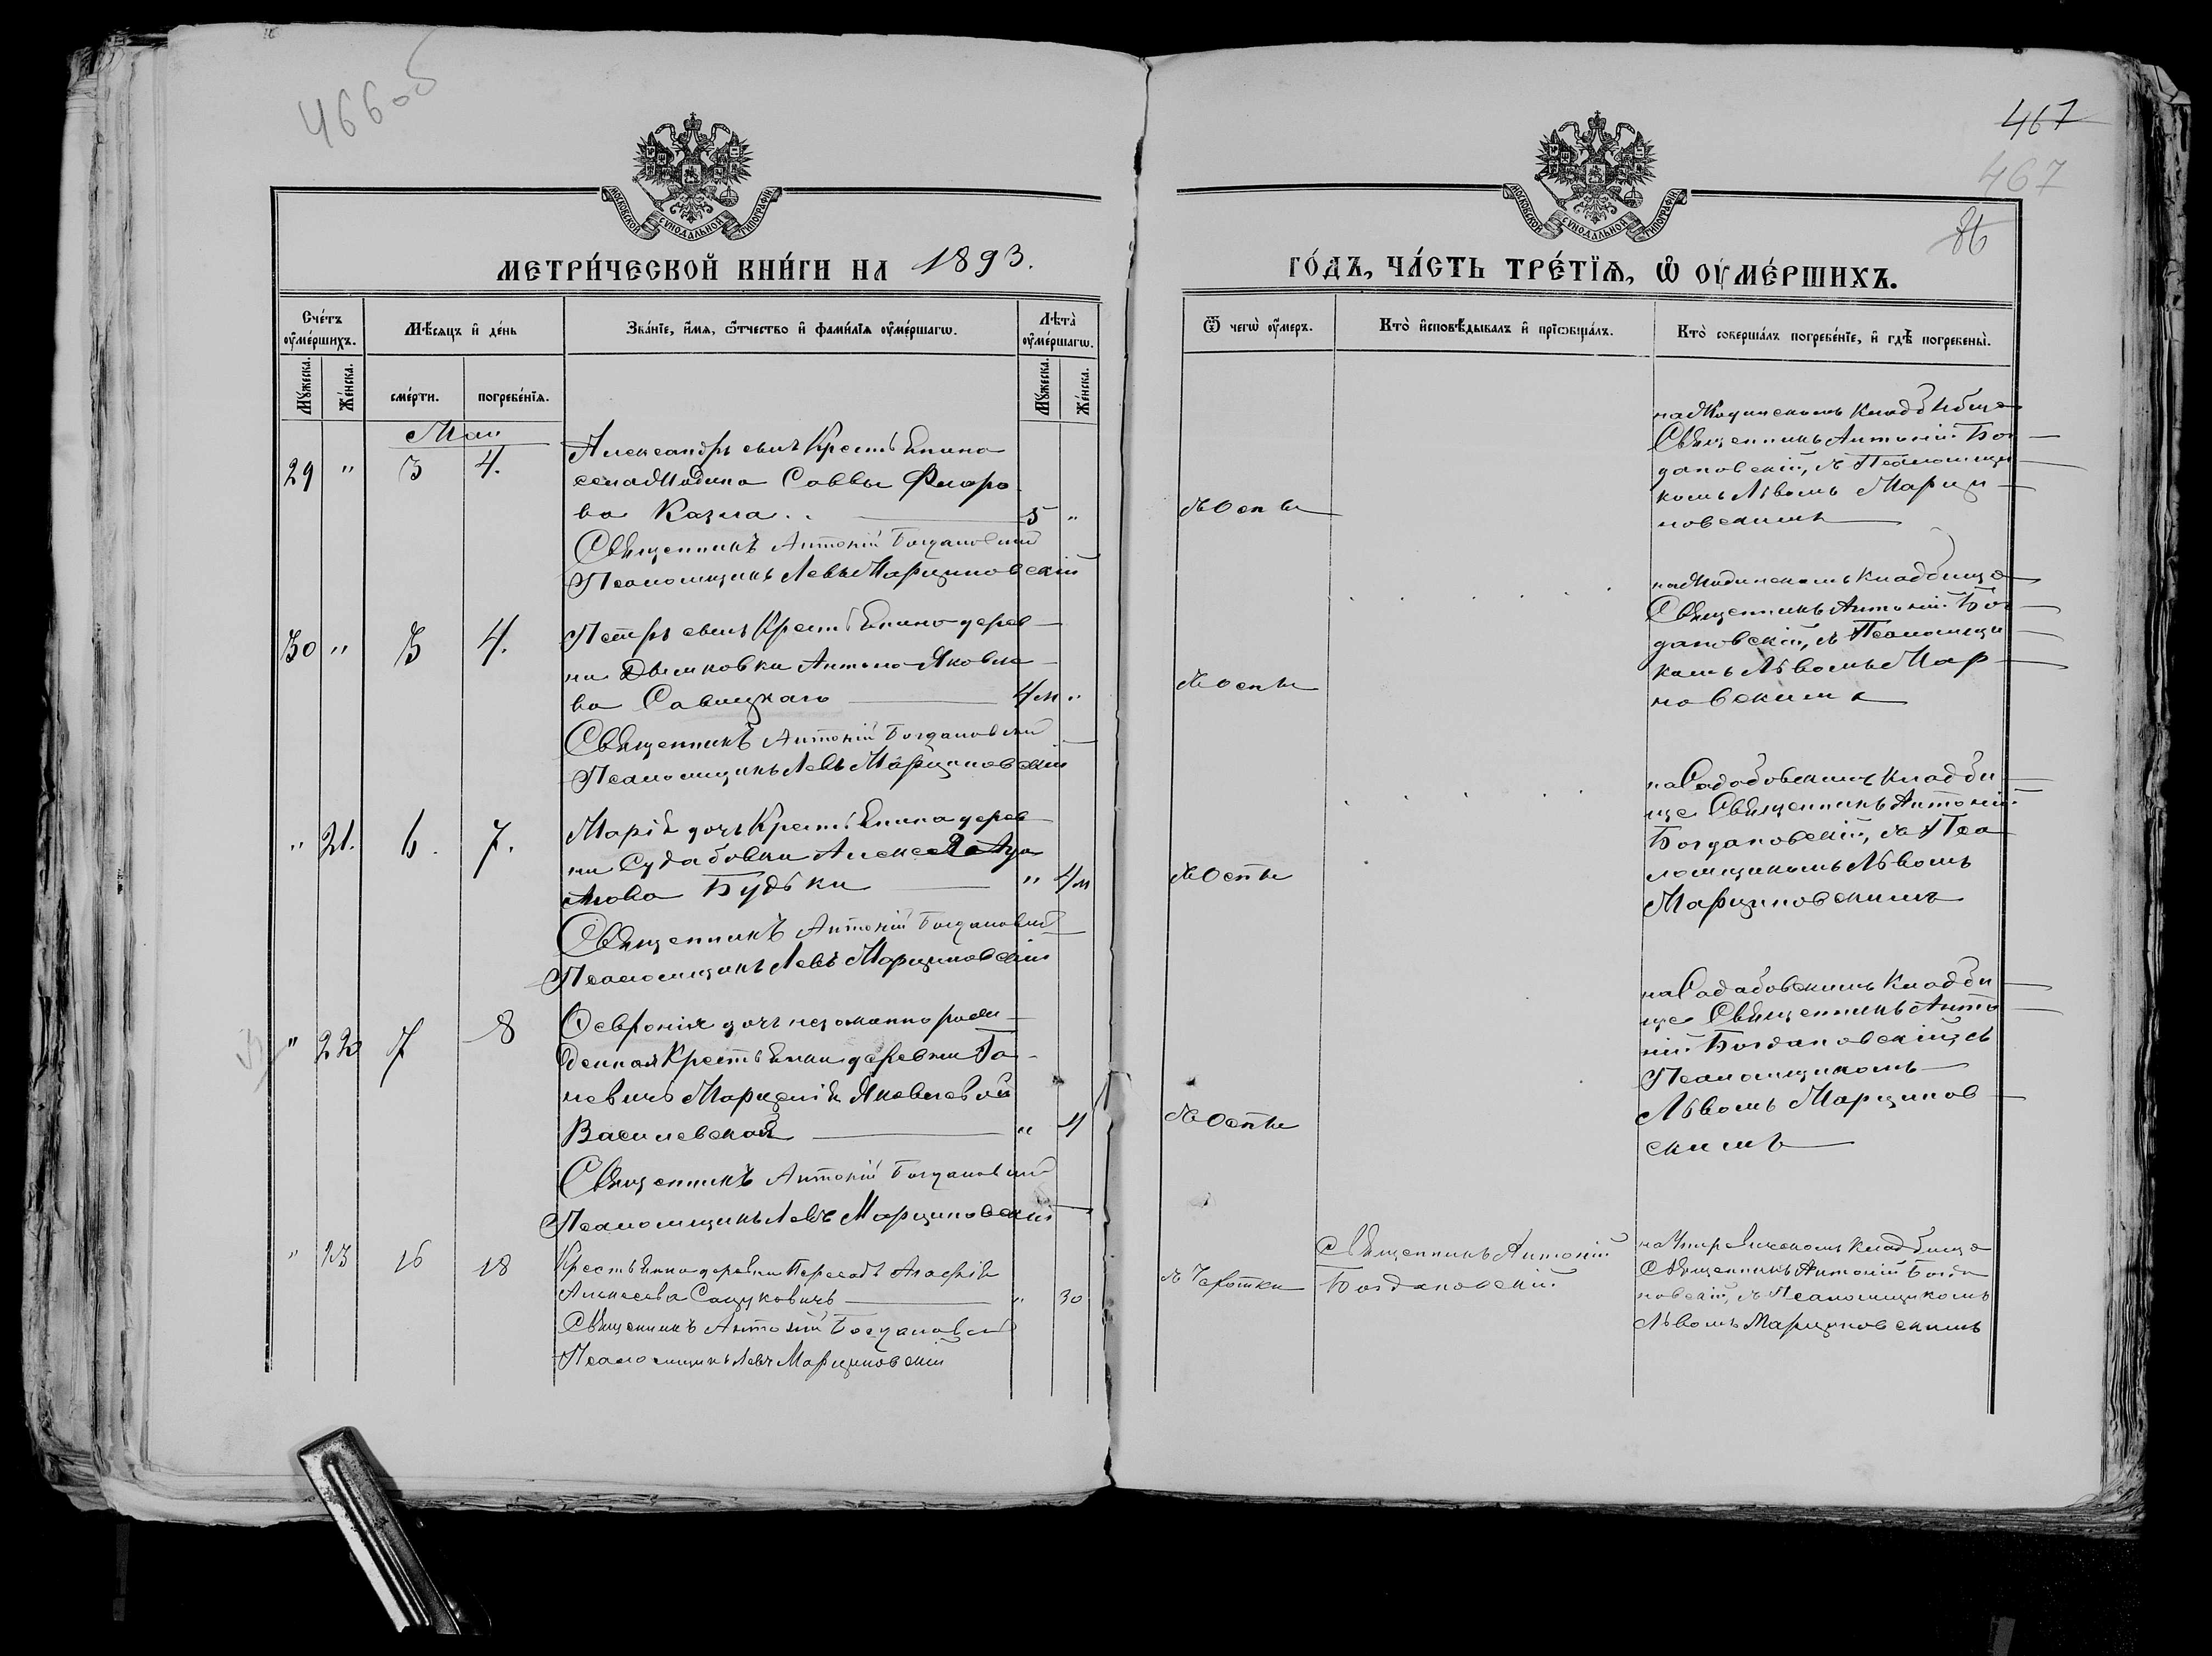 466об
МОСКОВСКОЙ СѴНОДАЛЬНОЙ ТИПОГРАФІИ
МЕТРИ́ЧЕСКОЙ КНИ́ГИ НА 1893.
Сче́тъ ᲂу҆ме́ршихъ.
Мѣ́сяцъ и҆ де́нь
Зва́нїе, и҆́мѧ, ѻ҆́тчество и҆ фами́лїѧ ᲂу҆ме́ршагѡ.
Лѣ́та ᲂу҆ме́ршагѡ.
Мꙋ́жеска. Же́нска.
сме́рти. погребе́нїѧ.
Мꙋ́жеска. Же́нска.
Май
29 " 3 4.
Александръ сынъ Крестьянина
села Саввы Флоро
ва Казла 5 "
Священникъ Антоній Богдановскій
Псаломщикъ Левъ Марциновскій
30 " 3 4.
Петръ сынъ Крестьянина дерев
ни Дымковки Антона Яковле
ва Савицкаго 4 м "
Священникъ Антоній Богдановскій
Псаломщикъ Левъ Марциновскій
" 21. 6. 7.
Марія дочь Крестьянина дерев
ни Судабовки
Будьки " 4 м
Священникъ Антоній Богдановскій
Псаломщикъ Левъ Марциновскій
" 22 7 8
Февронія дочь незаконно рож
денная Крестьянки деревни Га
невичъ Яковлевой
Василевской " 4
Священникъ Антоній Богдановскій
Псаломщикъ Левъ Марциновскій
" 23 16 18
Крестьянка деревни Пересадъ Агафія
Алексѣева " 30
Священникъ Антоній Богдановскій
Псаломщикъ Левъ Марциновскій
467
467
86
МОСКОВСКОЙ СѴНОДАЛЬНОЙ ТИПОГРАФІИ
ГО́ДЪ, ЧА́СТЬ ТРЕ́ТЇѦ, Ѡ҆ ОУ҆МЕ́РШИХЪ.
Ѿ чегѡ̀ ᲂу҆́меръ.
Кто̀ и҆сповѣ́дывалъ и҆ прїѡбща́лъ.
Кто̀ соверша́лъ погребе́нїе, и҆ гдѣ̀ погребены̀.
Оспы
на кладбище
Священникъ Антоній Бог
дановскій, съ Псаломщи
комъ Львомъ Марци
новскимъ
Оспы
на кладбище
Священникъ Антоній Бог
дановскій, съ Псаломщи
комъ Львомъ Мар
новскимъ
Оспы
на кладби
ще Священникъ Антоній
Богдановскій, съ Пса
ломщикомъ Львомъ
Марциновскимъ
Оспы
на кладби
ще Священникъ Анто
ній Богдановскій, съ
Псаломщикомъ
Львомъ Марцинов
скимъ
Чахотки
Священникъ Антоній
Богдановскій
на кладбище
Священникъ Антоній Богда
новскій, съ Псаломщикомъ
Львомъ Марциновскимъ